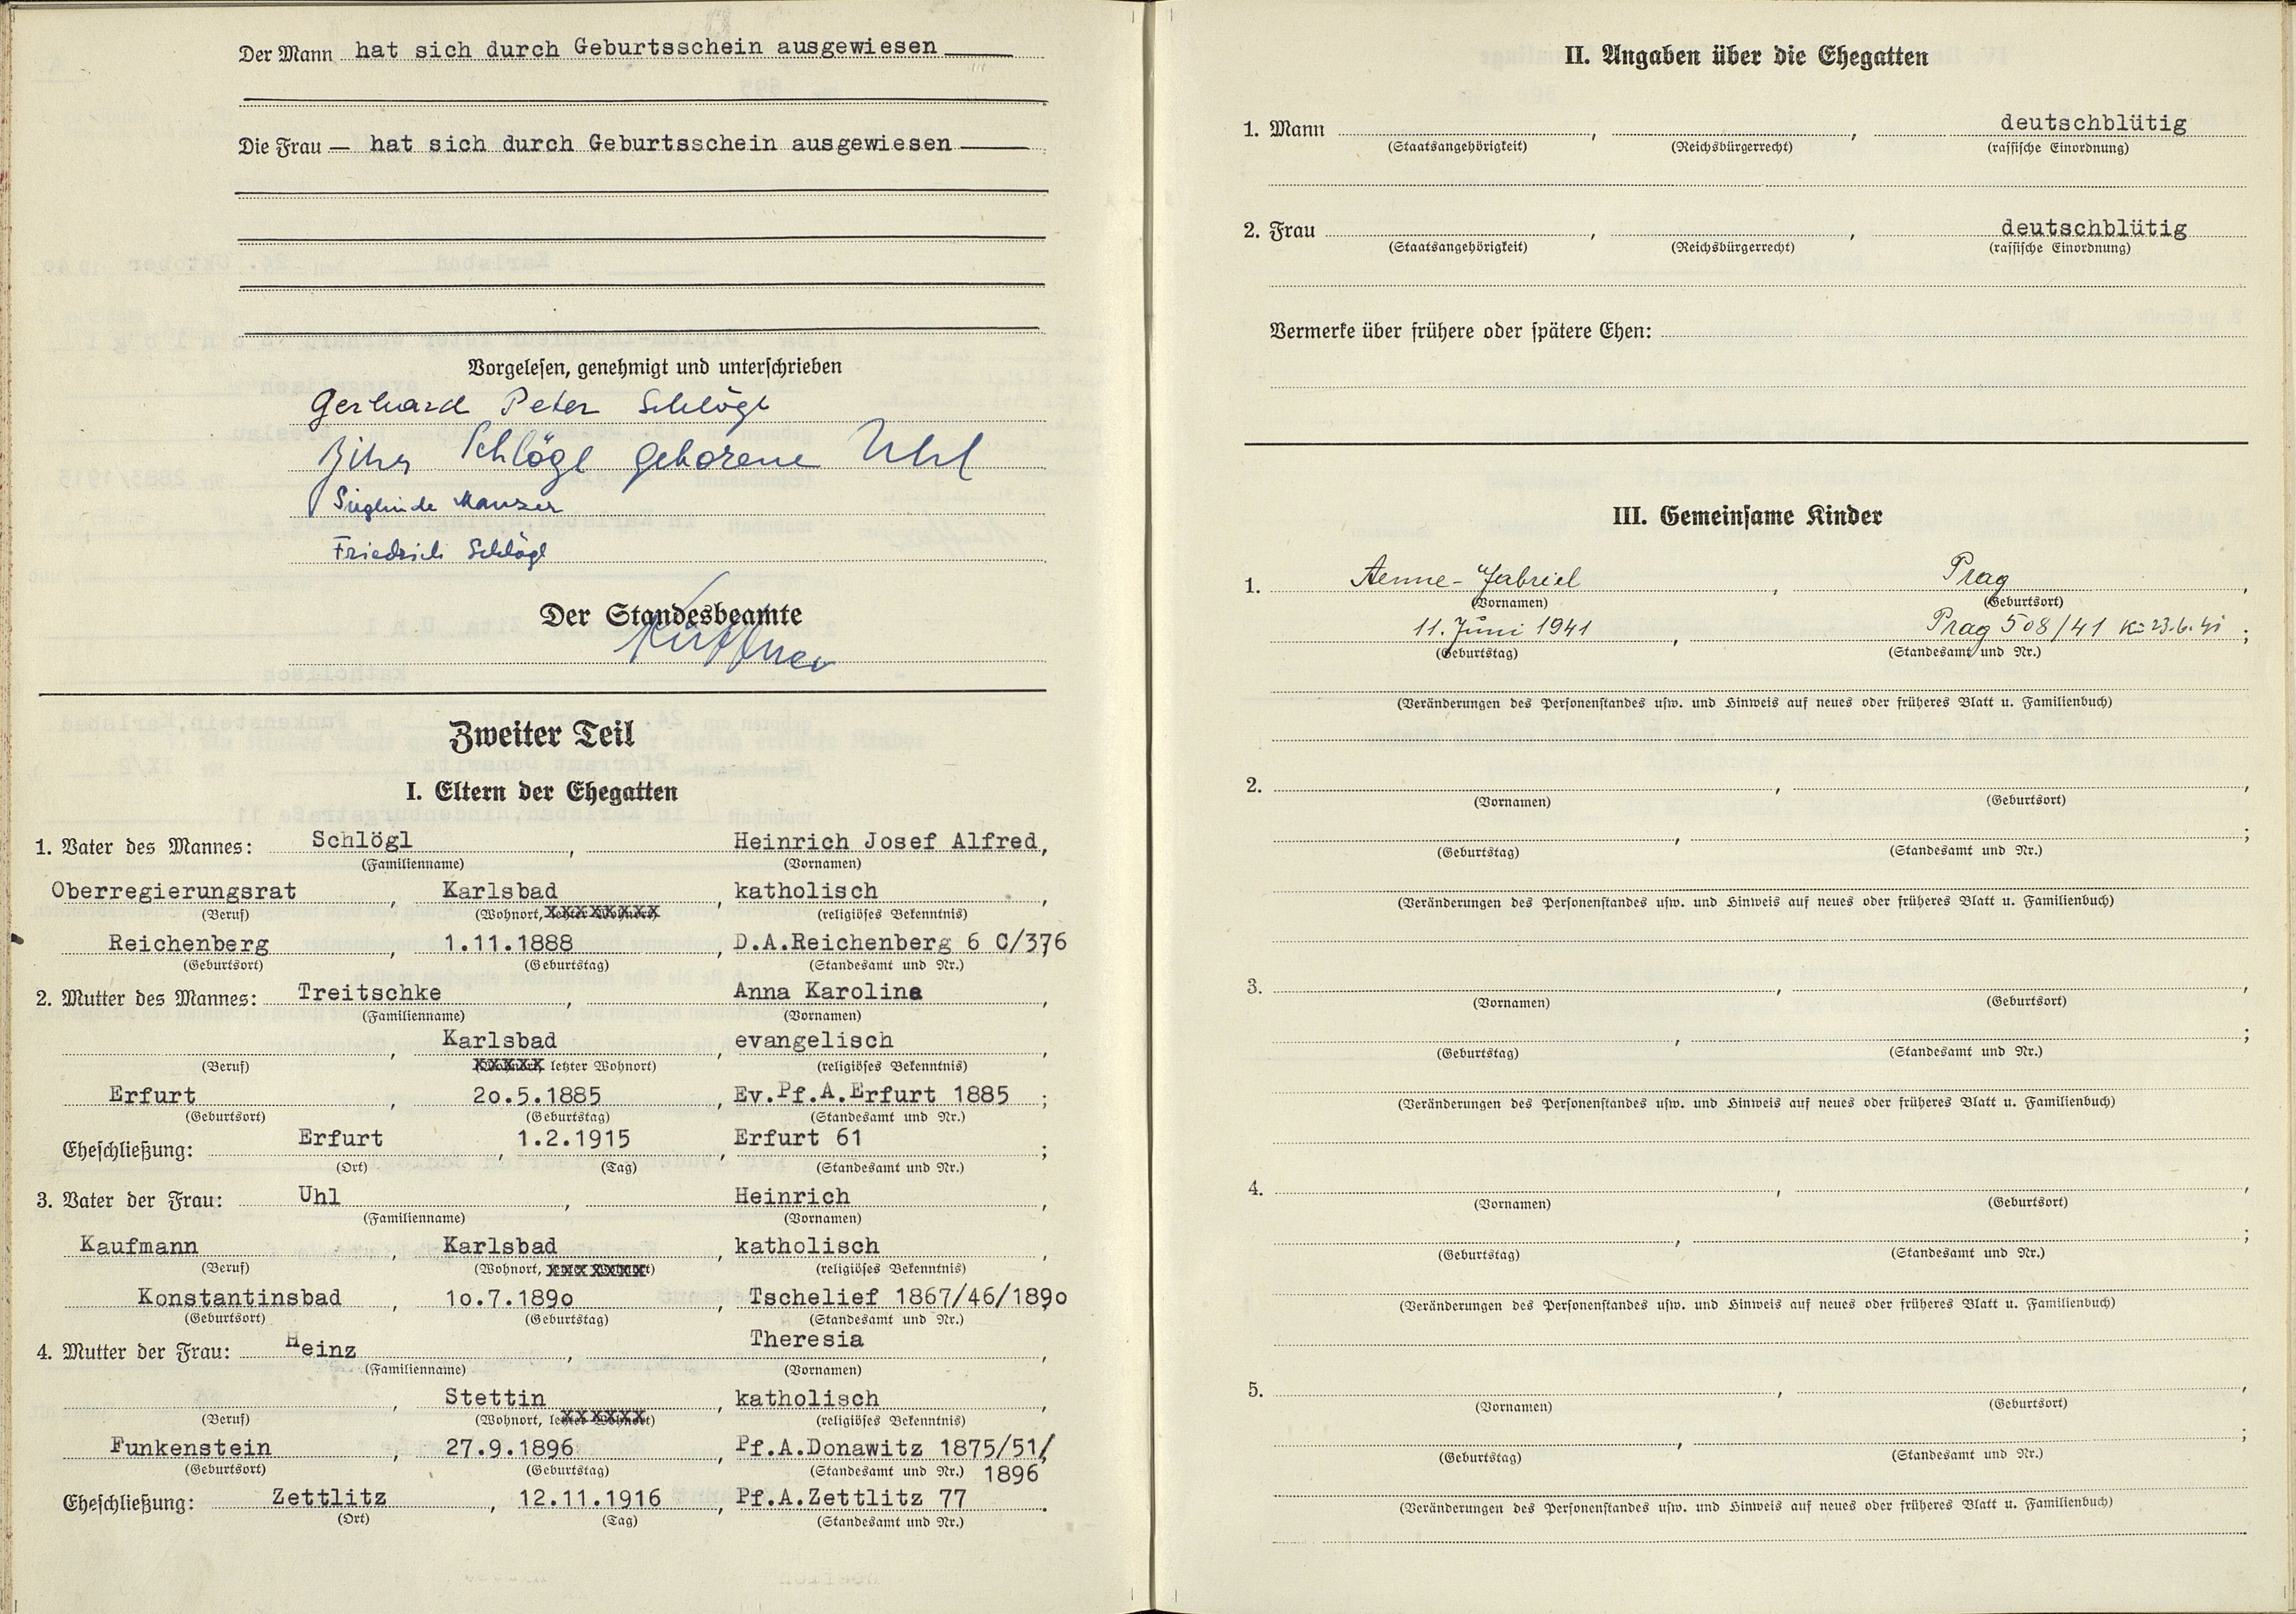 Der Mann hat sich durch Geburtsschein ausgewiesen
Die Frau — hat sich durch Geburtsschein ausgewiesen
Vorgelesen, genehmigt und unterschrieben
Gerhard Peter Schlögl
Schlögl geborene Uhl
Sieglinde
Friedrich Schlögl
Der Standesbeamte
Zweiter Teil
I. Eltern der Ehegatten
1. Vater des Mannes: Schlögl , Heinrich Josef Alfred,
(Familienname) (Vornamen)
Oberregierungsrat , Karlsbad , katholisch ,
(Beruf) (Wohnort, letzter Wohnort) (religiöses Bekenntnis)
Reichenberg , 1.11.1888 , D.A.Reichenberg 6 C/376
(Geburtsort) (Geburtstag) (Standesamt und Nr.)
2. Mutter des Mannes: Treitschke , Anna Karoline ,
(Familienname) (Vornamen)
, Karlsbad , evangelisch ,
(Beruf) (Wohnort, letzter Wohnort) (religiöses Bekenntnis)
Erfurt , 2o.5.1885 , Ev.Pf.A.Erfurt 1885 ;
(Geburtsort) (Geburtstag) (Standesamt und Nr.)
Eheschließung: Erfurt , 1.2.1915 , Erfurt 61 ;
(Ort) (Tag) (Standesamt und Nr.)
3. Vater der Frau: Uhl , Heinrich ,
(Familienname) (Vornamen)
Kaufmann , Karlsbad , katholisch ,
(Beruf) (Wohnort, letzter Wohnort) (religiöses Bekenntnis)
Konstantinsbad , 1o.7.189o , Tschelief 1867/46/189o
(Geburtsort) (Geburtstag) (Standesamt und Nr.)
4. Mutter der Frau: Heinz , Theresia ,
(Familienname) (Vornamen)
, Stettin , katholisch ,
(Beruf) (Wohnort, letzter Wohnort) (religiöses Bekenntnis)
Funkenstein , 27.9.1896 , Pf.A.Donawitz 1875/51/
(Geburtsort) (Geburtstag) (Standesamt und Nr.) 1896
Eheschließung: Zettlitz , 12.11.1916 , Pf.A.Zettlitz 77 .
(Ort) (Tag) (Standesamt und Nr.)
II. Angaben über die Ehegatten
1. Mann , , deutschblütig
(Staatsangehörigkeit) (Reichsbürgerrecht) (rassische Einordnung)
2. Frau , , deutschblütig
(Staatsangehörigkeit) (Reichsbürgerrecht) (rassische Einordnung)
Vermerke über frühere oder spätere Ehen:
III. Gemeinsame Kinder
1. Aenne-Gabriel , Prag ,
(Vornamen) (Geburtsort)
11. Juni 1941 , Prag 508/41 K: 23.6.41 ;
(Geburtstag) (Standesamt und Nr.)
(Veränderungen des Personenstandes usw. und Hinweis auf neues oder früheres Blatt u. Familienbuch)
2. , ,
(Vornamen) (Geburtsort)
, ;
(Geburtstag) (Standesamt und Nr.)
(Veränderungen des Personenstandes usw. und Hinweis auf neues oder früheres Blatt u. Familienbuch)
3. , ,
(Vornamen) (Geburtsort)
, ;
(Geburtstag) (Standesamt und Nr.)
(Veränderungen des Personenstandes usw. und Hinweis auf neues oder früheres Blatt u. Familienbuch)
4. , ,
(Vornamen) (Geburtsort)
, ;
(Geburtstag) (Standesamt und Nr.)
(Veränderungen des Personenstandes usw. und Hinweis auf neues oder früheres Blatt u. Familienbuch)
5. , ,
(Vornamen) (Geburtsort)
, ;
(Geburtstag) (Standesamt und Nr.)
(Veränderungen des Personenstandes usw. und Hinweis auf neues oder früheres Blatt u. Familienbuch)